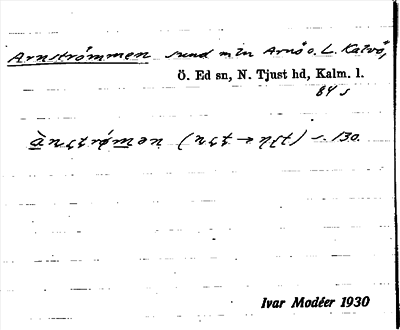 Arnströmmen sund m'ln Arnö o. L. Kalvö,
Ö. Ed sn, N. Tjust hd, Kalm. l.
B4 s
130.
Ivar Modéer 1930